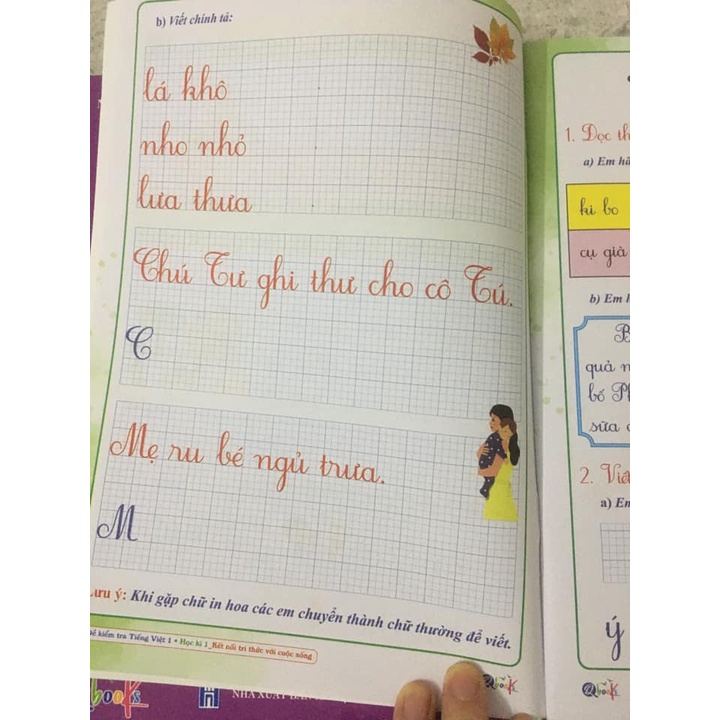 b) Viết chính tả:
lá khô
nho nhỏ
lưa thưa
Chú Tư ghi thư cho cô Tú.
C
Mẹ ru bé ngủ trưa.
M
Lưu ý: Khi gặp chữ in hoa các em chuyển thành chữ thường để viết.
Đề kiểm tra Tiếng Việt 1 • Học kì 1_Kết nối tri thức với cuộc sống
books
NHÀ XUẤT
book
1. Đọc
a) Em
ki bo
cụ già
b) Em
B
quả
bố
sữa
2.
a) Em
ý
book